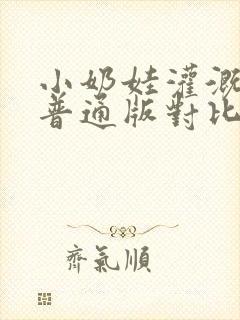 小奶娃灌溉
普通版對比
齊氣順